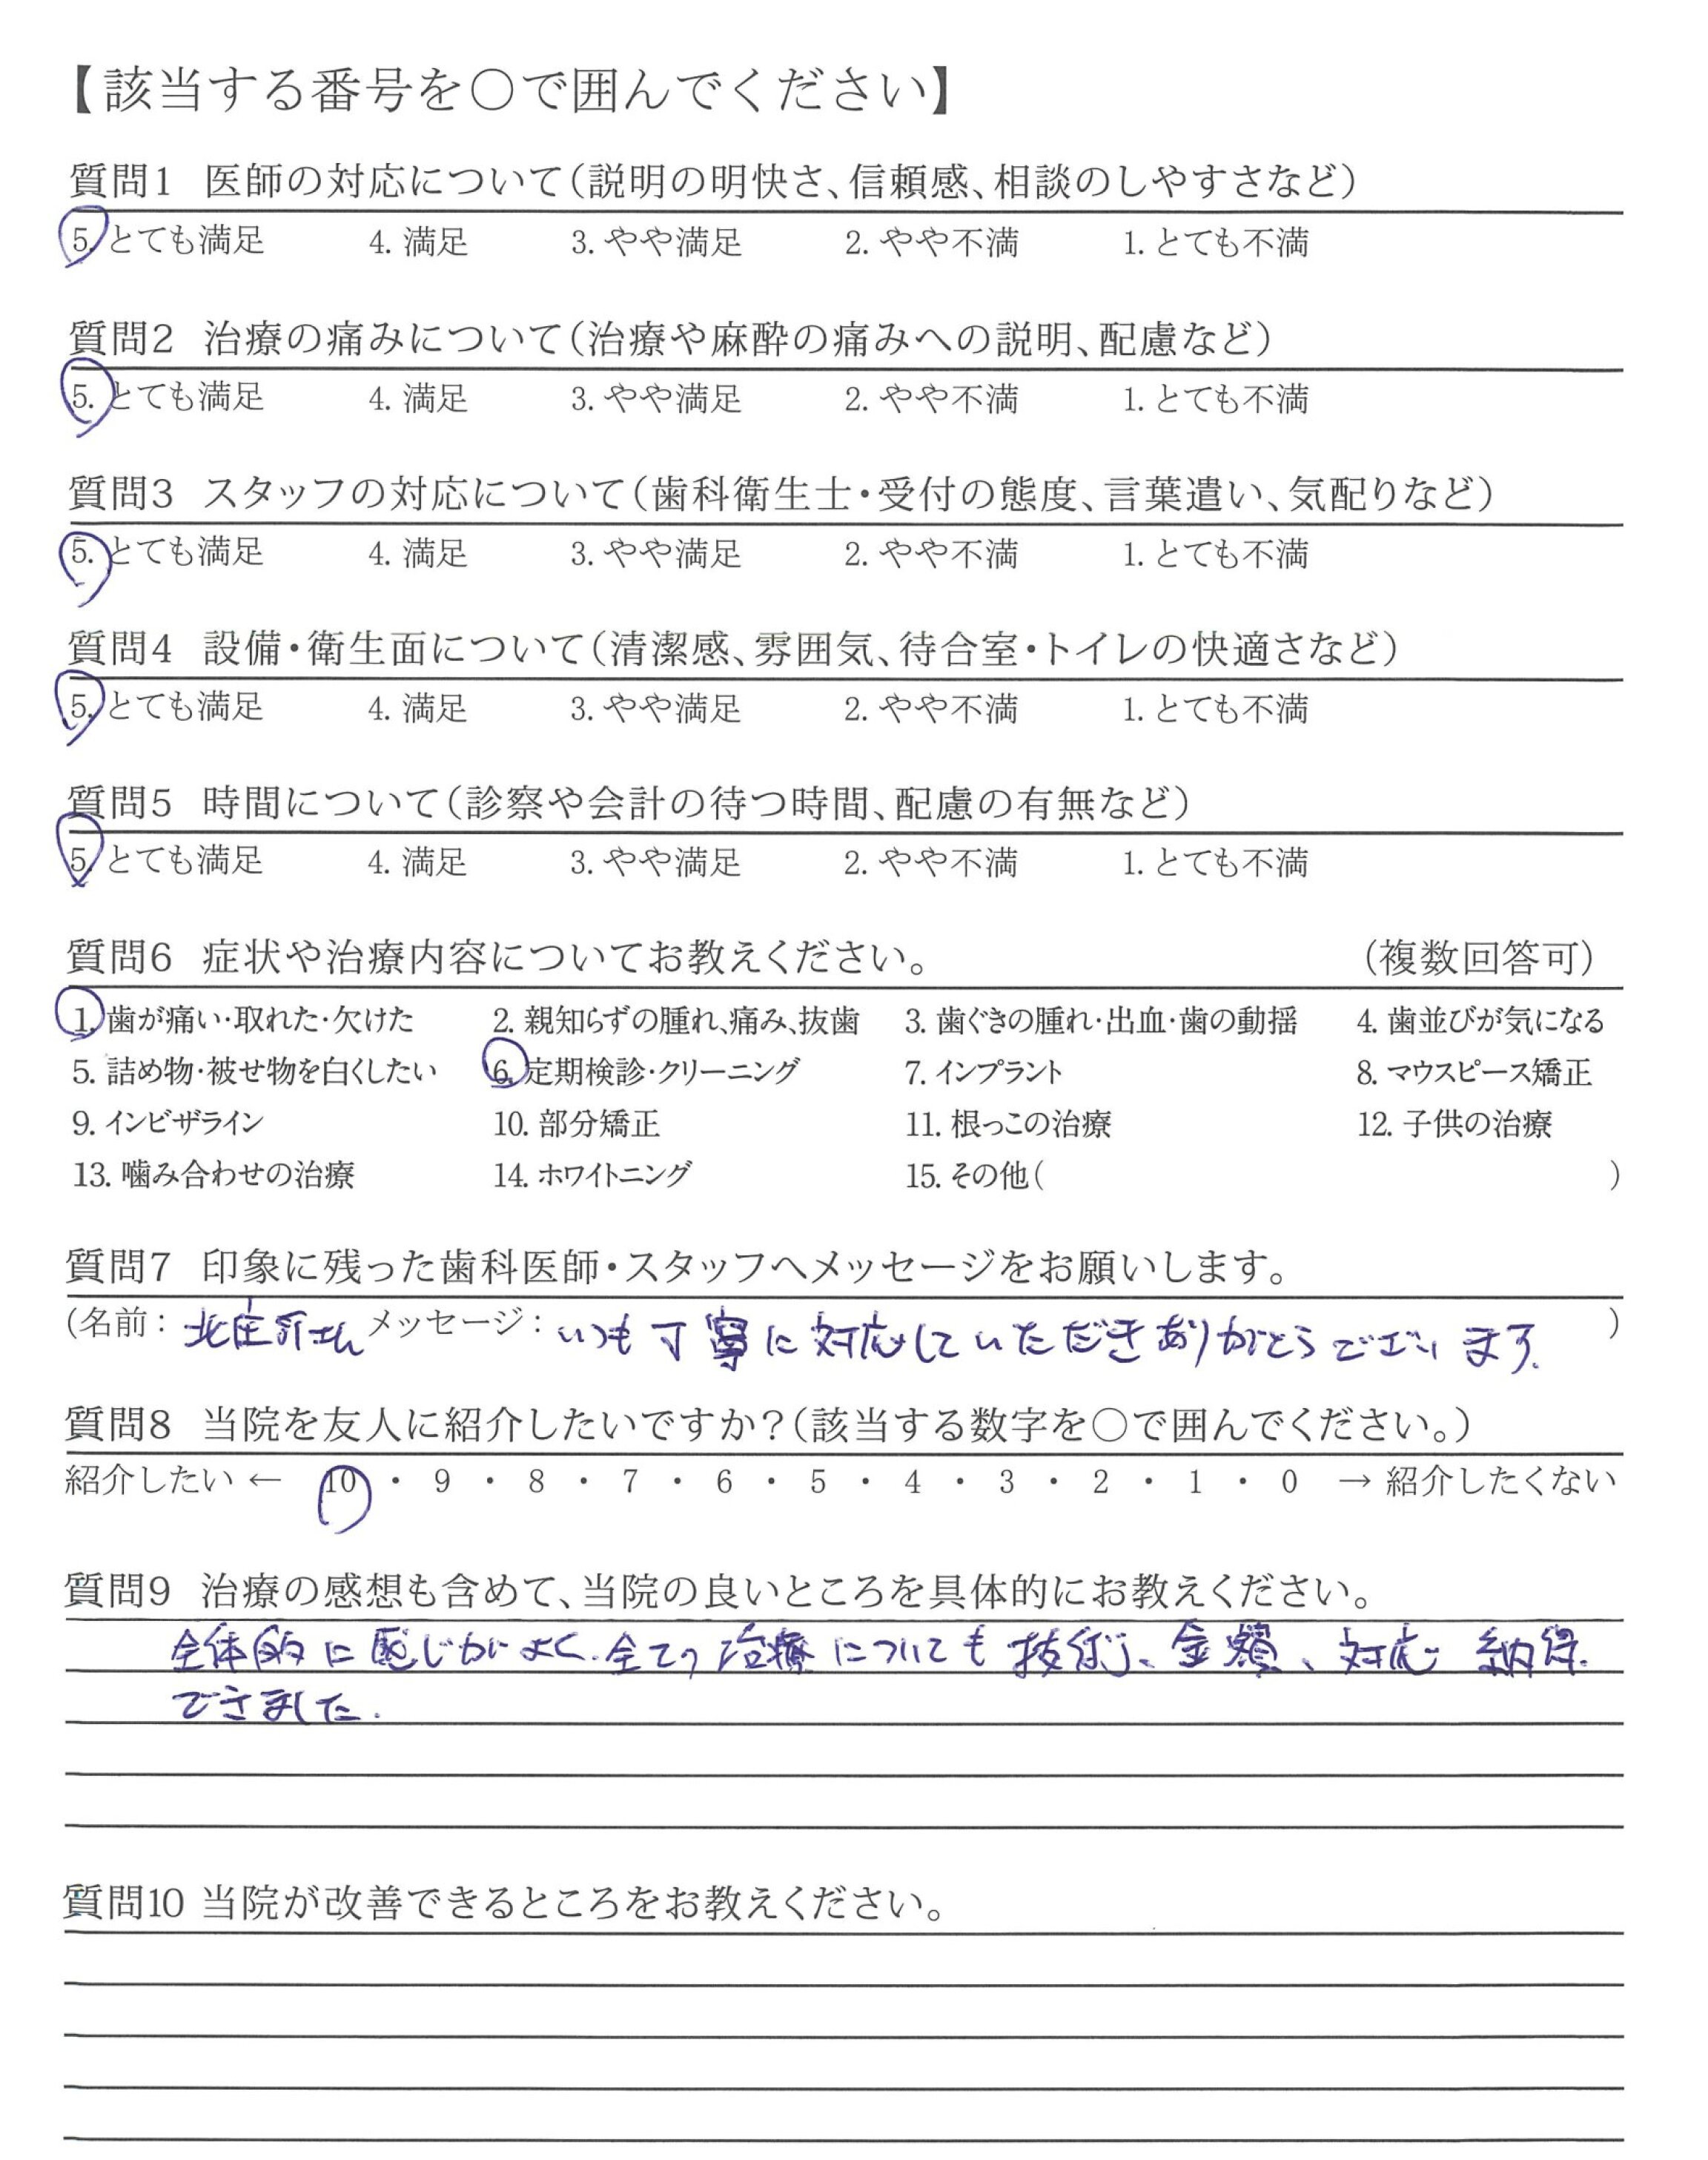 【該当する番号を○で囲んでください】
質問1 医師の対応について(説明の明快さ、信頼感、相談のしやすさなど)
5. とても満足 4. 満足 3. やや満足 2. やや不満 1. とても不満
質問2 治療の痛みについて(治療や麻酔の痛みへの説明、配慮など)
5. とても満足 4. 満足 3. やや満足 2. やや不満 1. とても不満
質問3 スタッフの対応について(歯科衛生士・受付の態度、言葉遣い、気配りなど)
5. とても満足 4. 満足 3. やや満足 2. やや不満 1. とても不満
質問4 設備・衛生面について(清潔感、雰囲気、待合室・トイレの快適さなど)
5. とても満足 4. 満足 3. やや満足 2. やや不満 1. とても不満
質問5 時間について(診察や会計の待つ時間、配慮の有無など)
5. とても満足 4. 満足 3. やや満足 2. やや不満 1. とても不満
質問6 症状や治療内容についてお教えください。 (複数回答可)
1. 歯が痛い・取れた・欠けた 2. 親知らずの腫れ、痛み、抜歯 3. 歯ぐきの腫れ・出血・歯の動揺 4. 歯並びが気になる
5. 詰め物・被せ物を白くしたい 6. 定期検診・クリーニング 7. インプラント 8. マウスピース矯正
9. インビザライン 10. 部分矯正 11. 根っこの治療 12. 子供の治療
13. 噛み合わせの治療 14. ホワイトニング 15. その他( )
質問7 印象に残った歯科医師・スタッフへメッセージをお願いします。
(名前: メッセージ: いつも丁寧に対応していただきありがとうございます。 )
質問8 当院を友人に紹介したいですか?(該当する数字を○で囲んでください。)
紹介したい ← 10 ・ 9 ・ 8 ・ 7 ・ 6 ・ 5 ・ 4 ・ 3 ・ 2 ・ 1 ・ 0 → 紹介したくない
質問9 治療の感想も含めて、当院の良いところを具体的にお教えください。
全体的に感じがよく、全ての治療についても技術、金額、対応 納得
できました。
質問10 当院が改善できるところをお教えください。